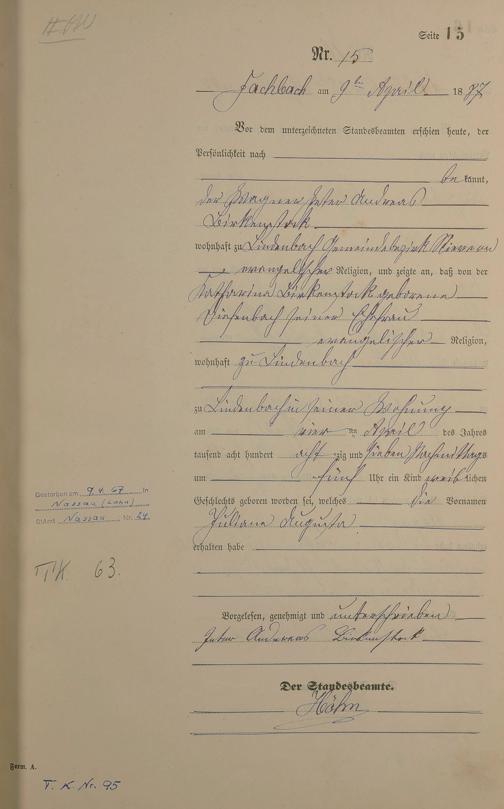 Seite 15
Nr. 15
Fachbach am 9ten April 1887
Vor dem unterzeichneten Standesbeamten erschien heute, der
Persönlichkeit nach
be kannt,
der Wagner Peter Andreas
Birkenstock
wohnhaft zu Lindenbach Gemeindebezirk Nievern
evangelischer Religion, und zeigte an, daß von der
Katharina Birkenstock geborene
Diefenbach seiner Ehefrau
evangelischer Religion,
wohnhaft zu Lindenbach
zu Lindenbach in seiner Wohnung
am vier ten April des Jahres
tausend acht hundert acht zig und sieben Nachmittags
um fünf Uhr ein Kind weib lichen
Geschlechts geboren worden sei, welches die Vornamen
Juliane Augusta
erhalten habe
Gestorben am 9.4.67 in
Nassau (Lahn)
StAmt Nassau Nr. 24
TK 63.
Vorgelesen, genehmigt und unterschrieben
Peter Andreas Birkenstock
Der Standesbeamte.
Höhn
Form. A.
T. K. Nr. 95